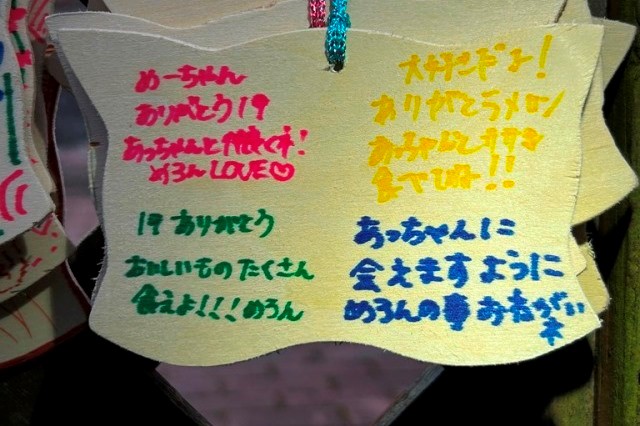 めーちゃん
ありがとう19
あっちゃんと仲良くネ!
めろんLOVE♡
大好きだよ!
ありがとうメロン
あっちゃんと
食べてね!!
19ありがとう
おいしいものたくさん
食えよ!!!めろん
あっちゃんに
会えますように
めろんの事お願い
ネ